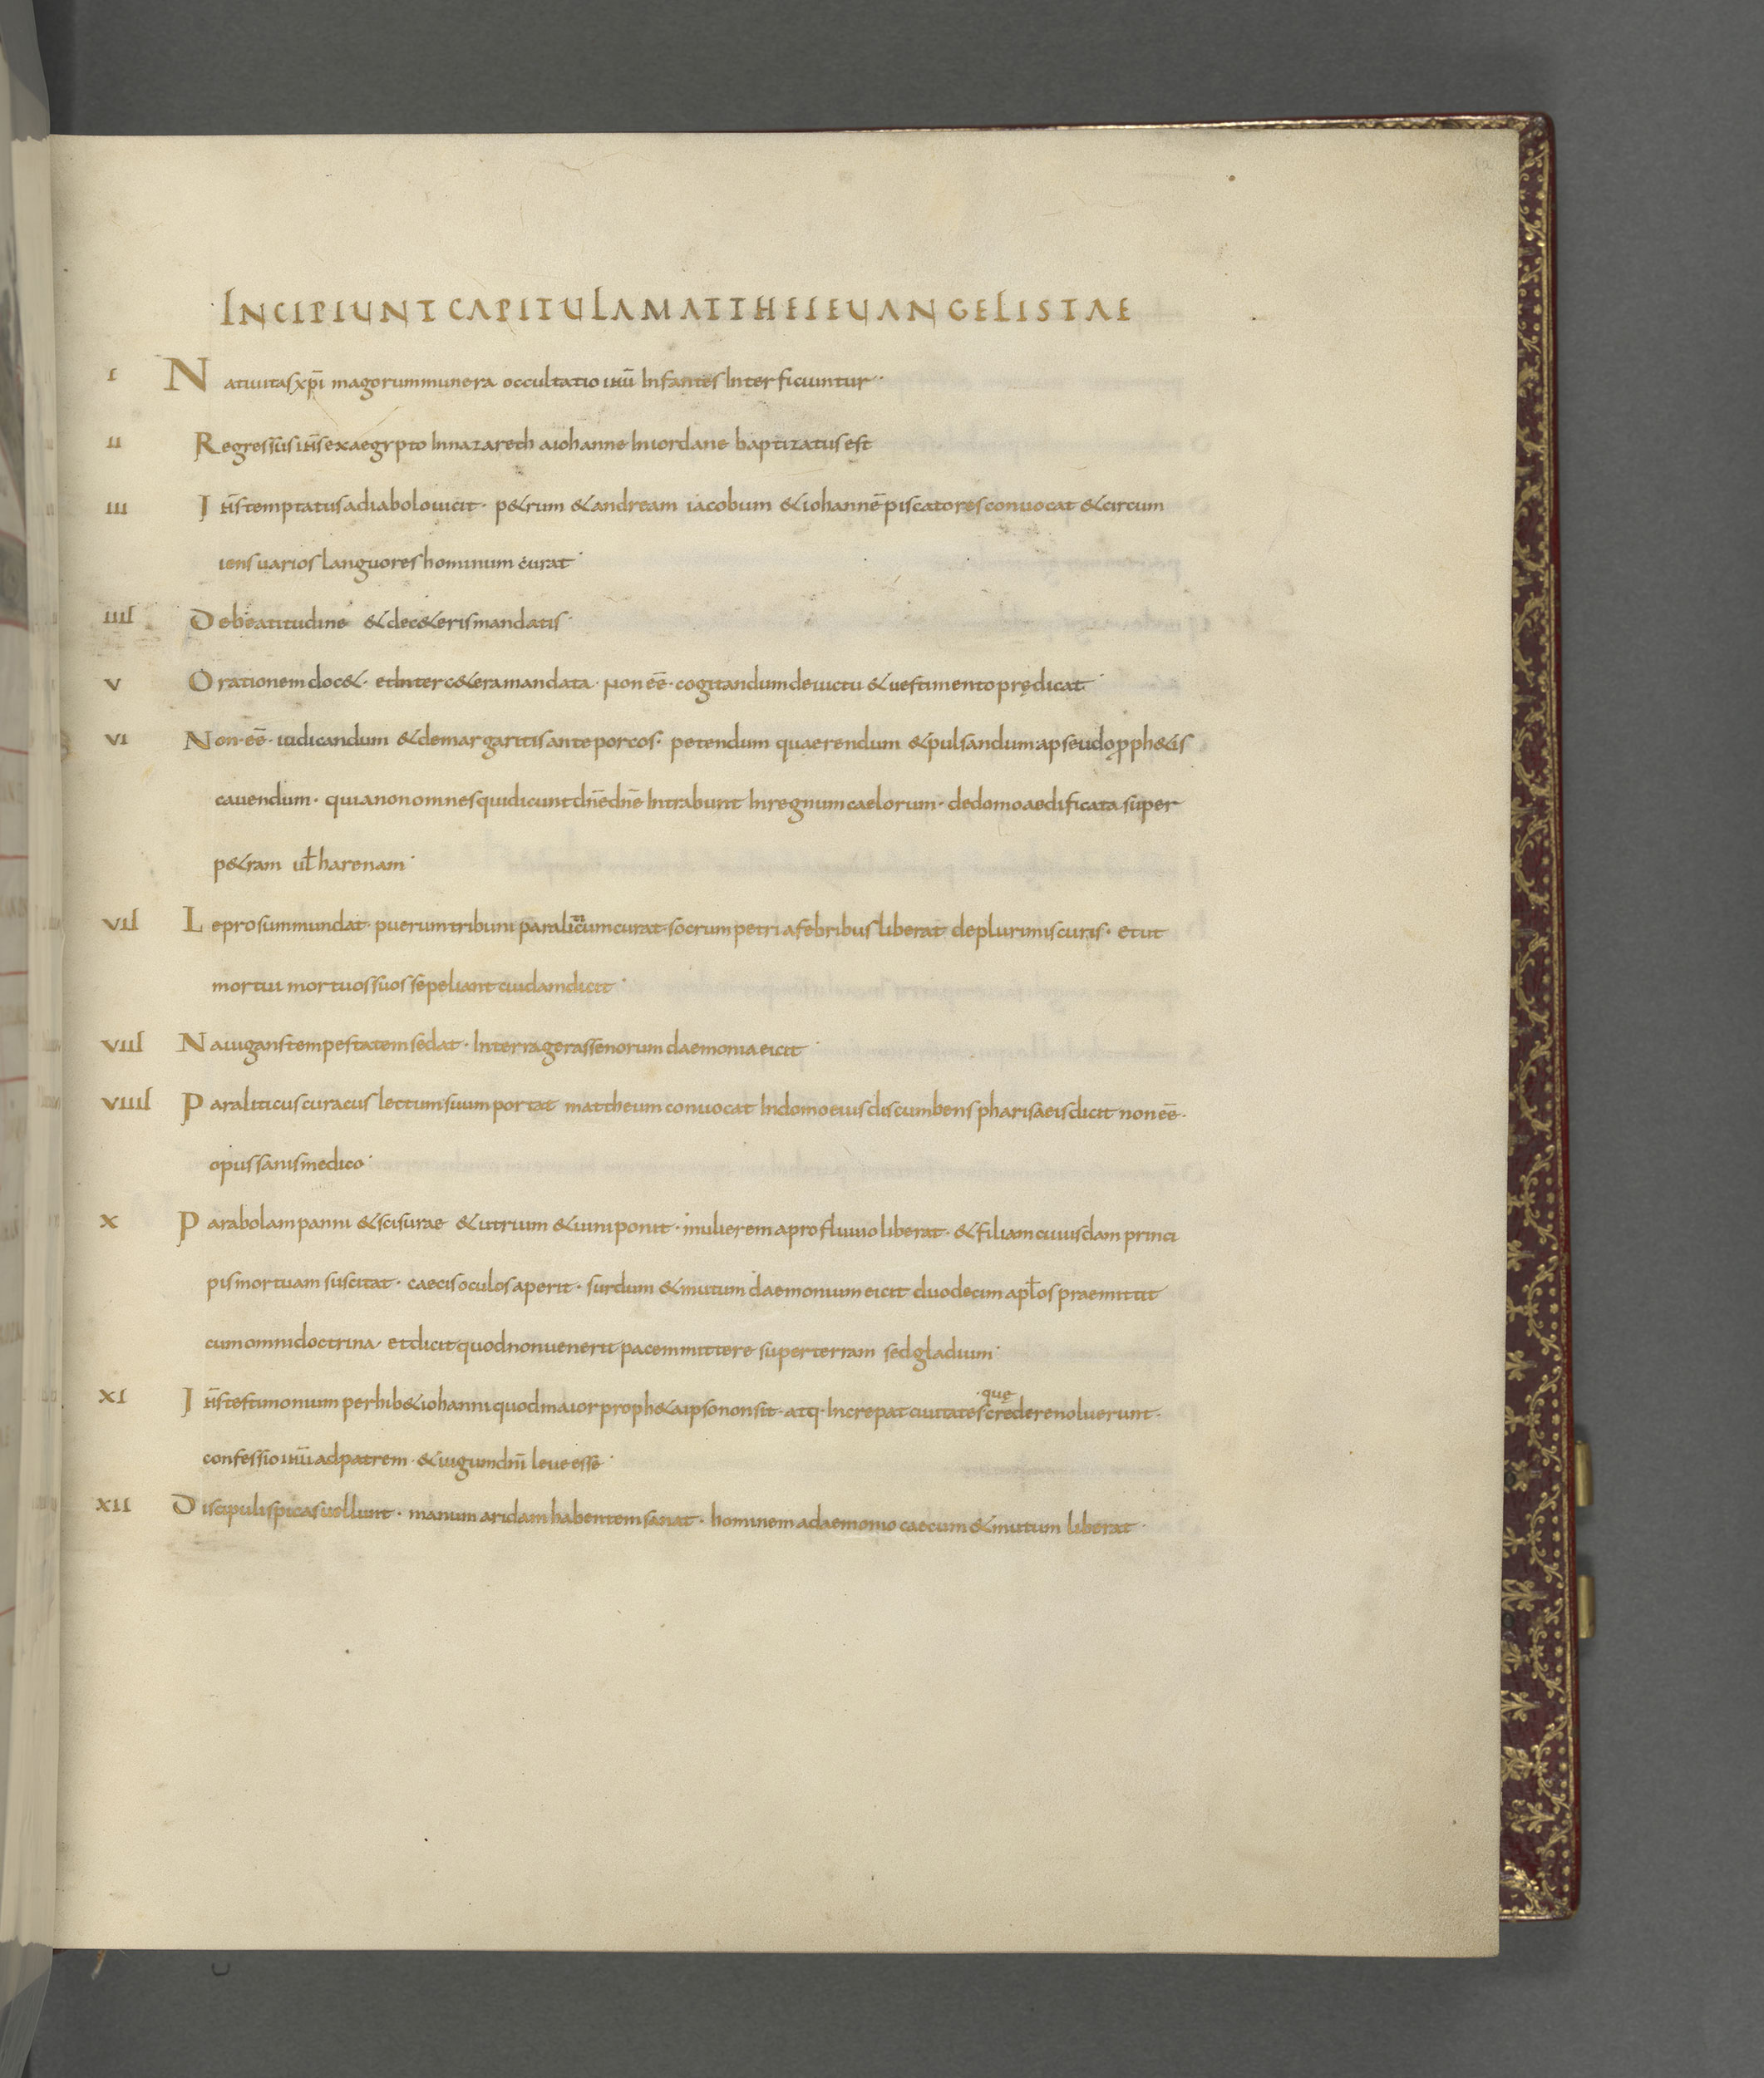 INCIPIUNT CAPITULA MATTHEI EUANGELISTAE
I Natiuitas xp̄i magorum munera occultatio ihū Infantes Interficiuntur·
II Regressus ih̄s ex aegypto In nazareth a iohanne In iordane baptizatus est
III Ih̄s temptatus a diabolo uicit· p&rum & andream iacobum & iohannē piscatores conuocat & circum
iens uarios languores hominum curat·
IIII De beatitudine & de c&eris mandatis·
V Orationem doc&· et Inter c&era mandata· Non eē· cogitandum de uictu & uestimento prędicat·
VI Non· eē· iudicandum & de margaritis ante porcos· petendum quaerendum & pulsandum a pseudo ꝓph&is
cauendum· quia non omnes qui dicunt dn̄e dn̄e Intrabunt In regnum caelorum· de domo aedificata super
p&ram ul̄ harenam·
VII Leprosum mundat· puerum tribuni paraliticum curat· socrum petri a febribus liberat de plurimis curis· et ut
mortui mortuos suos sepeliant cuidam dicit·
VIII Nauigans tempestatem sedat· In terra gerassenorum daemonia eicit·
VIIII Paraliticus curacus lectum suum portat mattheum conuocat In domo eius discumbens pharisaeis dicit non eē·
opus sanis medico·
X Parabolam panni & scisurae & utrium & uini ponit· mulierem a profluuio liberat· & filiam cuiusdam princi
pis mortuam suscitat· caecis oculos aperit· surdum & mutum daemonium eicit duodecim apl̄os praemittit
cum omni doctrina· et dicit quod non uenerit pacem mittere super terram sed gladium·
XI Ih̄s testimonium perhib& iohanni quod maior proph&a ipso non sit· atq· Increpat ciuitates ·quę credere noluerunt·
confessio ihū ad patrem· & iugum dn̄i leue esse·
XII Discipuli spicas uellunt· manum aridam habentem sanat· hominem a daemonio caecum & mutum liberat·